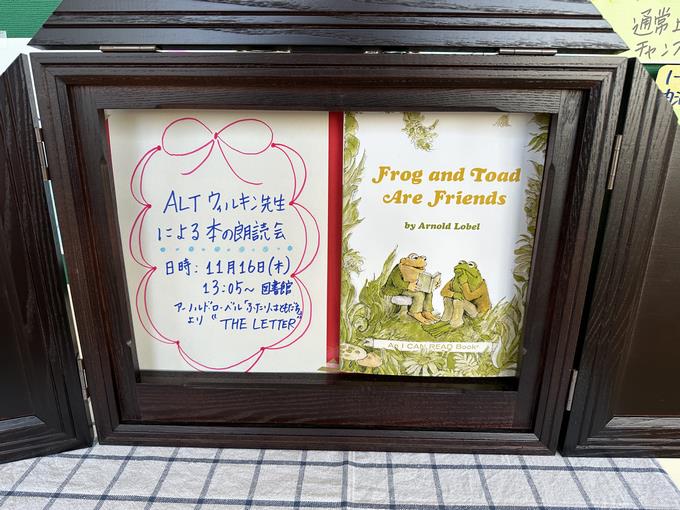 ALT ウィルキン先生
による本の朗読会
日時: 11月16日(木)
13:05〜 図書館
アーノルド・ローベル「ふたりはともだち」
より "THE LETTER"
Frog and Toad
Are Friends
by Arnold Lobel
An I CAN READ Book®
通常